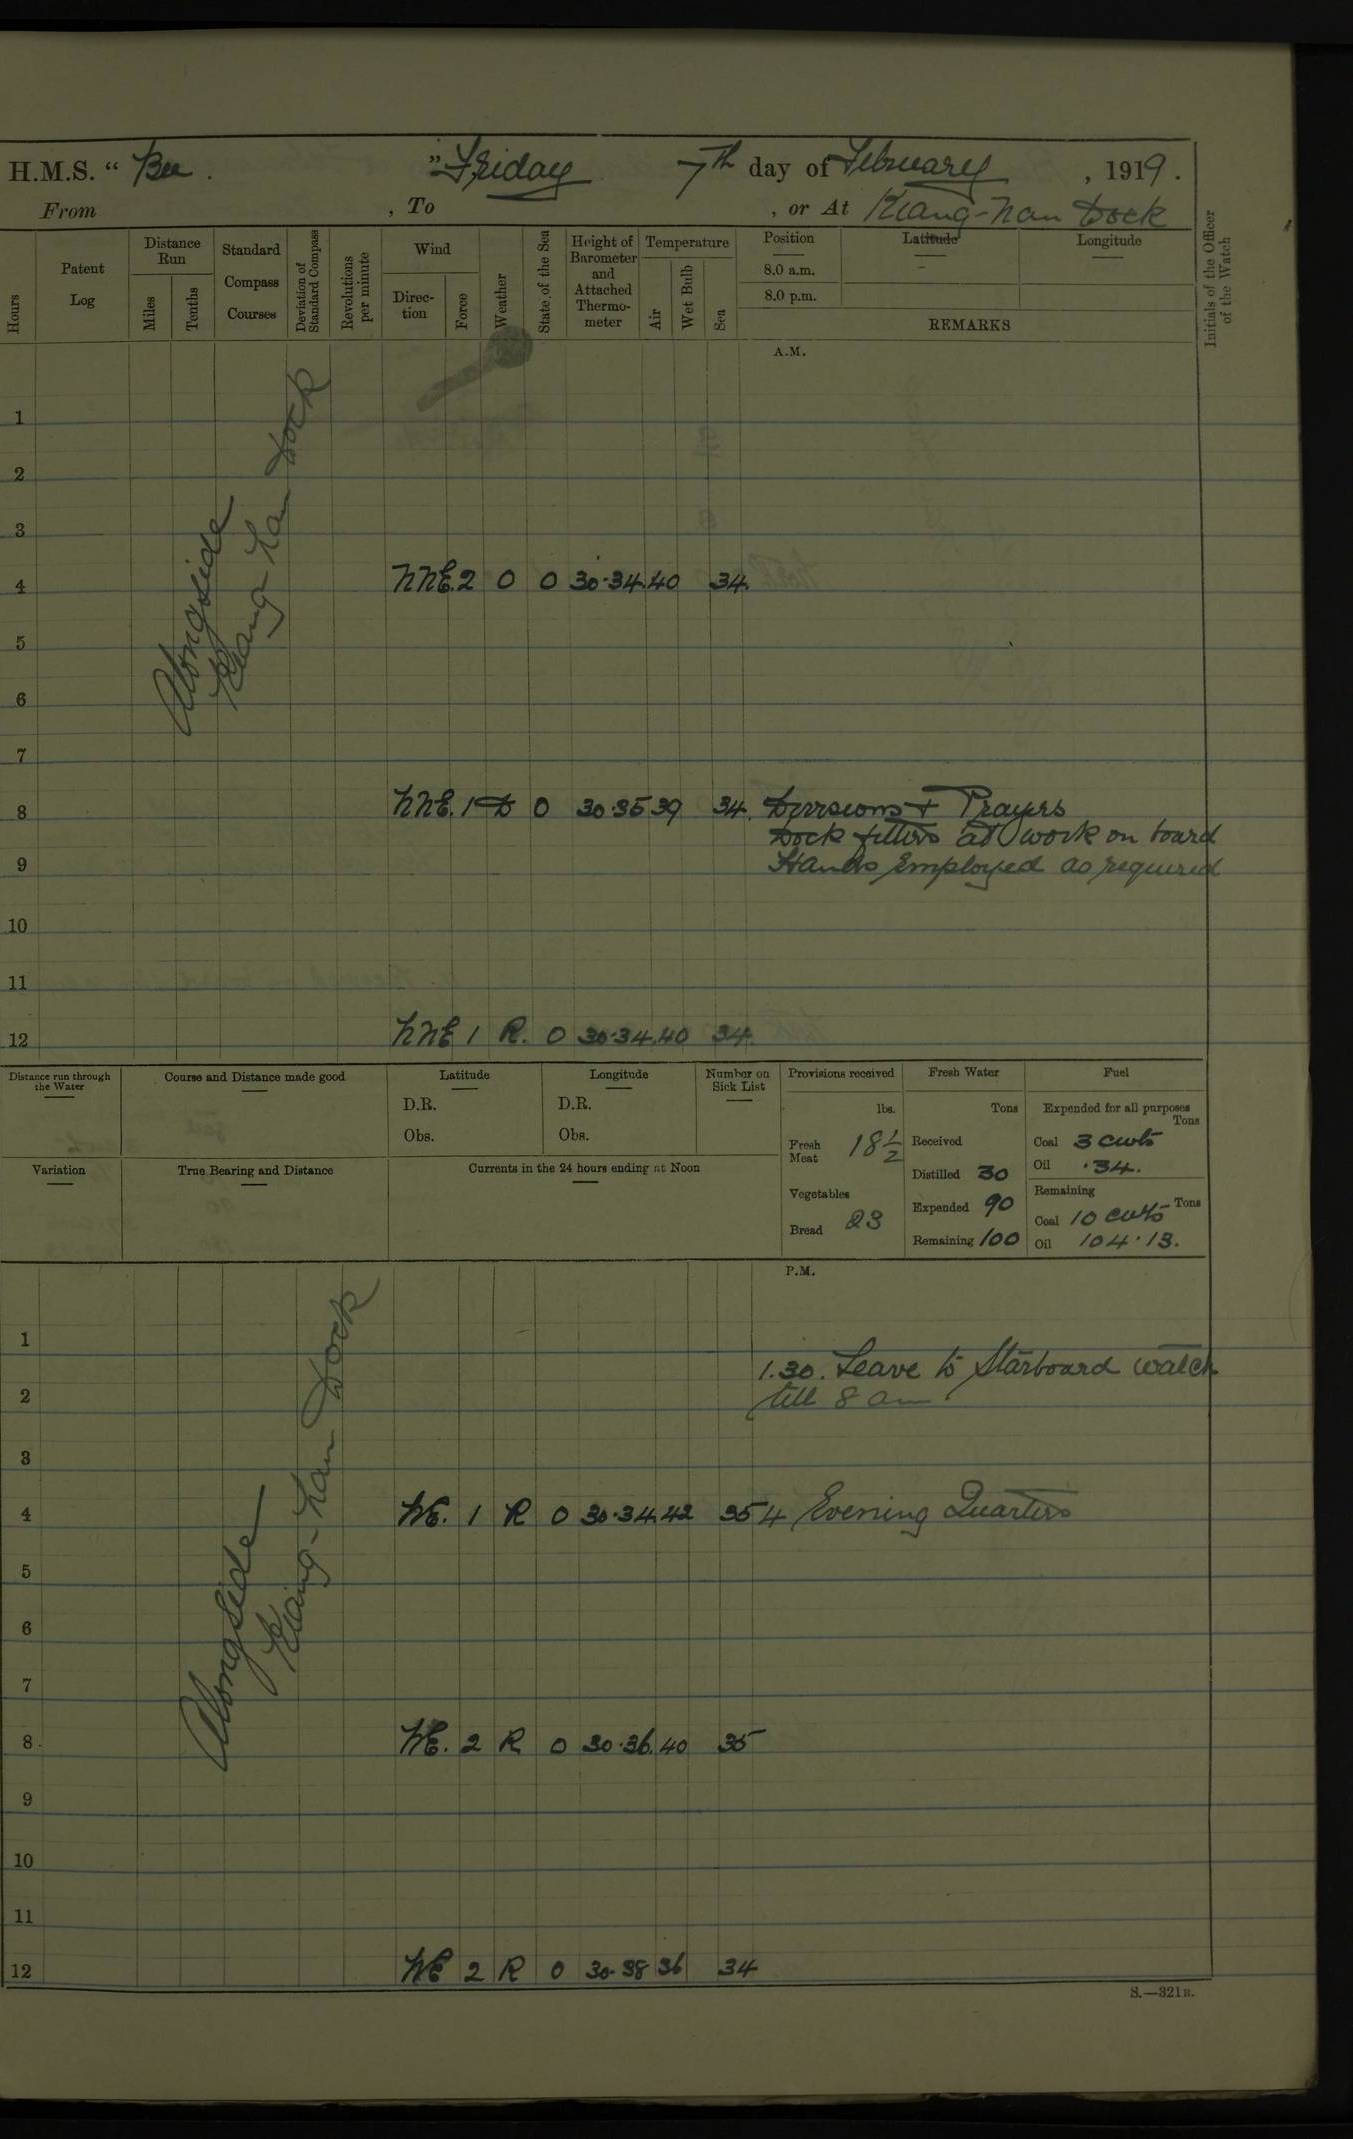 H.M.S. “ Bee. ” Friday 7th day of February, 1919.
From , To , or At Kiang-nan Dock
Hours
Patent Log
Distance Run
Miles
Tenths
Standard Compass Courses
Deviation of Standard Compass
Revolutions per minute
Wind
Direction
Force
Weather
State of the Sea
Height of Barometer and Attached Thermometer
Temperature
Air
Wet Bulb
Sea
Position
Latitude
Longitude
8.0 a.m.
8.0 p.m.
REMARKS
Initials of the Officer of the Watch
A.M.
Alongside
Kiang-nan Dock
1
2
3
4 NNE. 2 O O 30.34. 40 34.
5
6
7
8 NNE. 1 D O 30.35 39 34. Divisions & Prayers
Dock fitters at work on board
9 Hands Employed as required
10
11
12 NNE 1 R. O 30.34. 40 34.
Distance run through the Water
Course and Distance made good
Latitude
D.R.
Obs.
Longitude
D.R.
Obs.
Number on Sick List
Variation
True Bearing and Distance
Currents in the 24 hours ending at Noon
Provisions received
lbs.
Fresh Meat 18 1/2
Vegetables
Bread 23
Fresh Water
Tons
Received
Distilled 30
Expended 90
Remaining 100
Fuel
Expended for all purposes
Tons
Coal 3 cwts
Oil .34.
Remaining
Tons
Coal 10 cwts
Oil 104.13.
P.M.
Alongside
Kiang-nan Dock
1
1.30. Leave to Starboard watch
2 till 8 am
3
4 NE. 1 R O 30.34. 42 35 4 Evening Quarters
5
6
7
8 NE. 2 R O 30.36. 40 35
9
10
11
12 NE 2 R O 30.38 36 34
S.—321B.